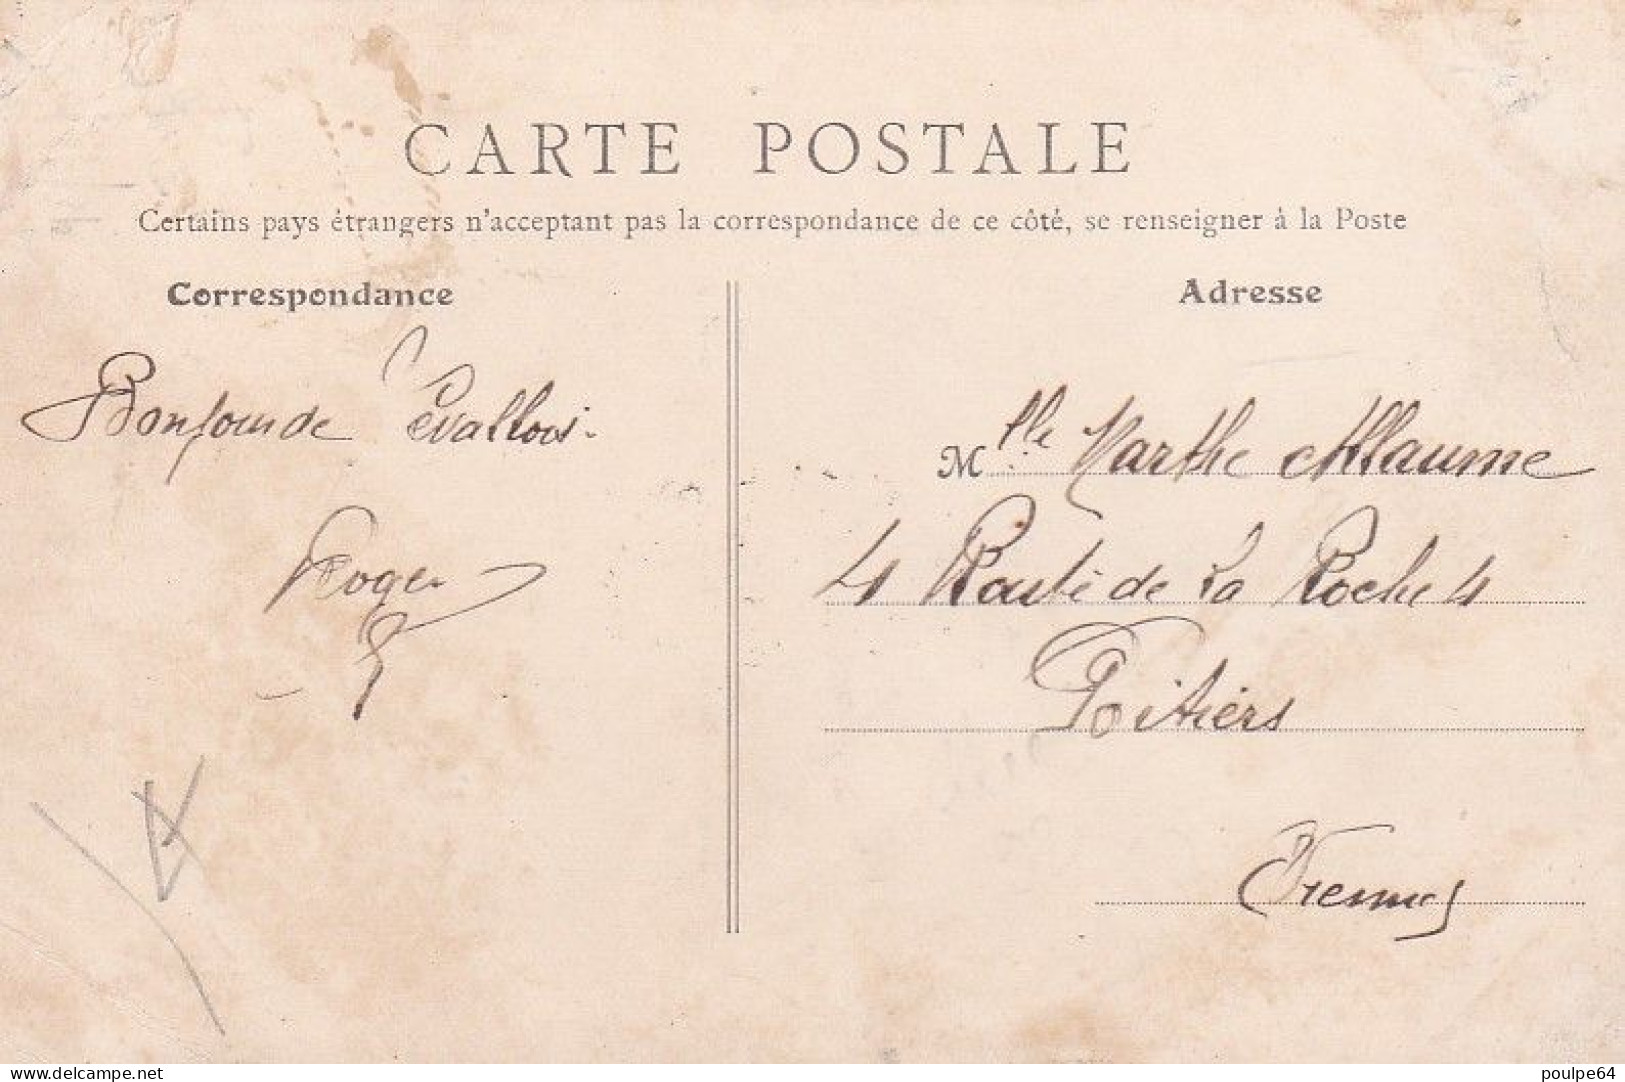 CARTE POSTALE
Certains pays étrangers n'acceptant pas la correspondance de ce côté, se renseigner à la Poste
Correspondance
Adresse
Bonjour de Levallois.
Roger
Mlle Marthe Allaume
4 Route de La Roche 4
Poitiers
Vienne
delcampe.net
poulpe64